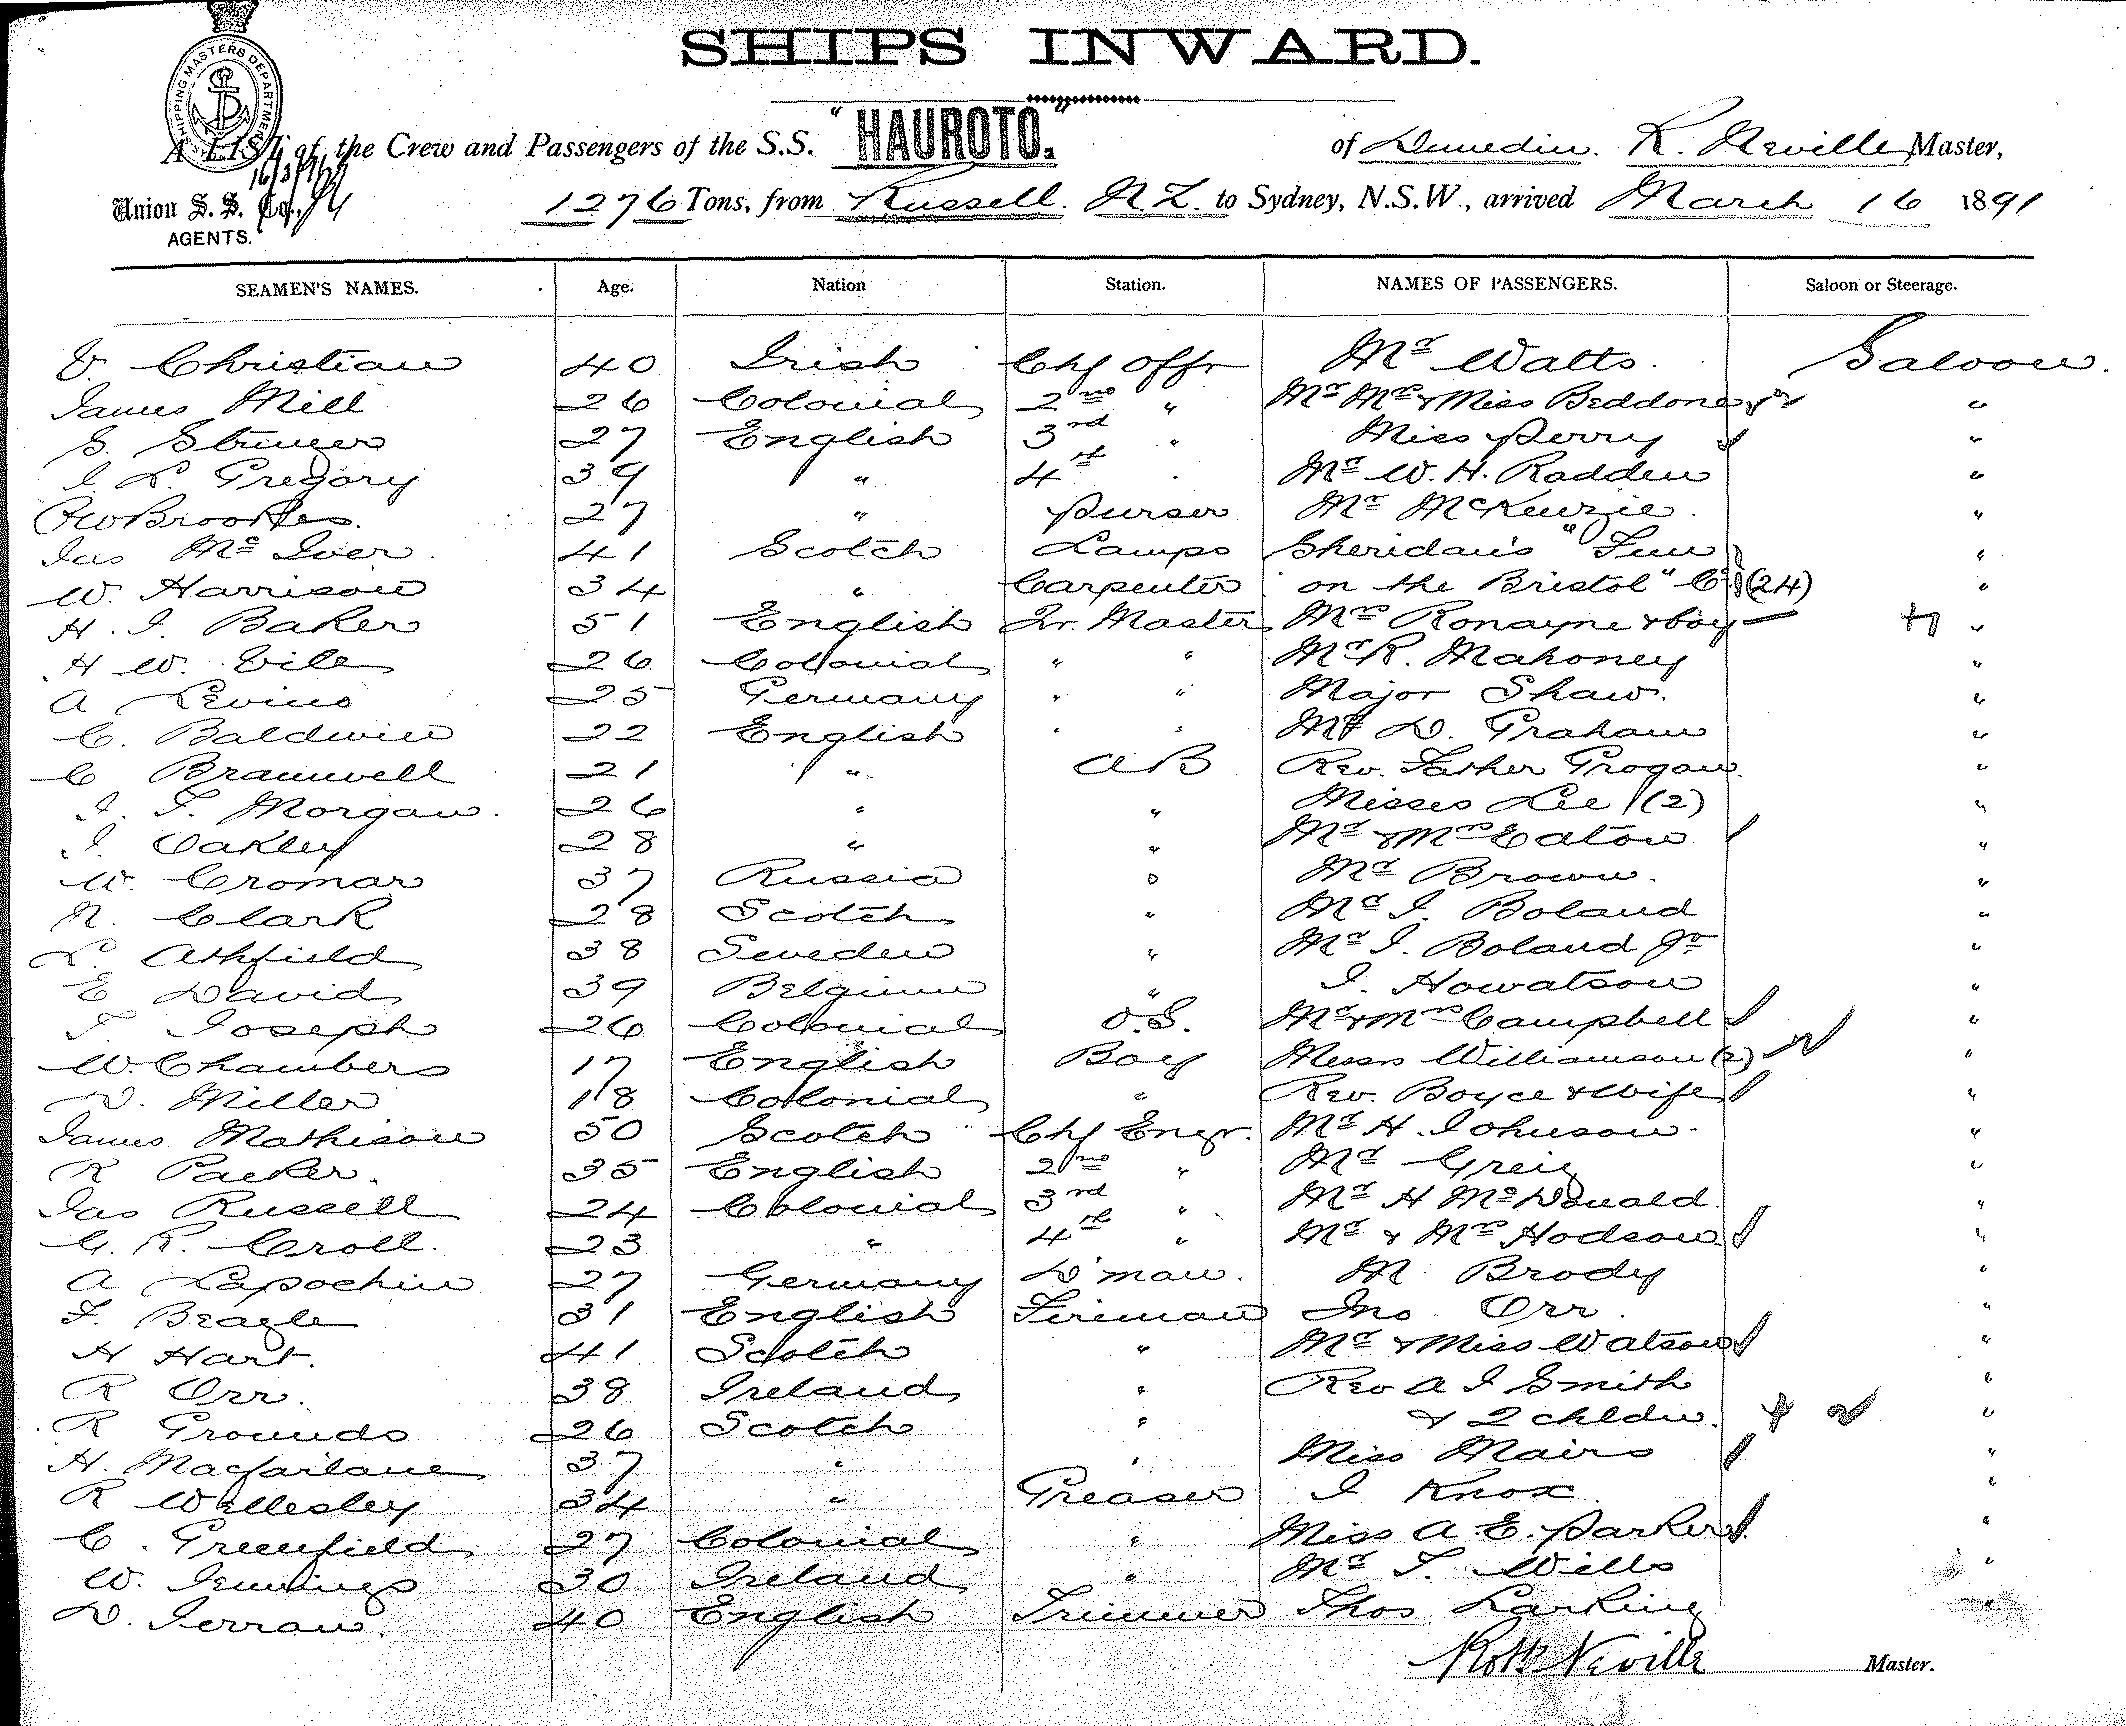 SHIPS INWARD.
SHIPPING MASTERS DEPARTMENT
A LIST of the Crew and Passengers of the S.S. "HAUROTO." of Dunedin. R. Neville, Master,
Union S. S. Co., 1276 Tons, from Russell. N.Z. to Sydney, N.S.W., arrived March 16 1891
AGENTS.
SEAMEN'S NAMES. Age. Nation Station. NAMES OF PASSENGERS. Saloon or Steerage.
V. Christian 40 Irish Chf Offr Mr Watts. Saloon.
James Mill 26 Colonial 2nd " Mr Mrs & Miss Beddone "
S. Stringer 27 English 3rd " Miss Perry "
J L. Gregory 39 " 4th " Mr W. H. Radden "
Brookes. 27 " Purser Mr McKenzie. "
Jas McIver. 41 Scotch Lamps Sheridan's "Fun "
W. Harrison 34 " Carpenter on the Bristol" Co (24) "
H. J. Baker 51 English Qr. Master Mrs Ronayne & boy "
H W. Vile 26 Colonial " " Mr R. Mahoney "
A Levine 25 Germany " " Major Shaw. "
C. Baldwin 22 English " " Mr D. Graham "
C Bramwell 21 " AB Rev. Father Grogan. "
J. T. Morgan. 26 " " Misses Lee (2) "
J. Oakley 28 " " Mr & Mrs Eaton "
W. Cromar 37 Russia " Mr Brown. "
N. Clark 28 Scotch " Mr J. Boland "
L. Athfield 38 Sweden " Mr J. Boland Jr "
E David 39 Belgium " J. Howatson "
T. Joseph 26 Colonial O.S. Mr & Mrs Campbell "
W. Chambers 17 English Boy Messrs Williamson (2) "
D. Miller 18 Colonial " Rev. Boyce & wife "
James Mathison 50 Scotch Chf Engr. Mr H. Johnson. "
R Packer. 35 English 2nd " Mr Greig "
Jas Russell 24 Colonial 3rd " Mr H McDonald. "
G. R. Croll. 23 " 4th " Mr & Mrs Hodson. "
A Lapochin 27 Germany D'man. M. Brody "
F. Beagle 31 English Fireman Jno. Orr. "
H Hart. 41 Scotch " Mr & Miss Watson "
R Orr. 38 Ireland " Rev A J Smith "
R Grounds 26 Scotch " & 2 chldn. "
H. Macfarlane 37 " " Miss Mairs "
R Wellesley 34 " Greaser J Knox. "
C. Greenfield 27 Colonial " Miss A. E. Parker. "
W. Jennings 30 Ireland " Mr T. Wills "
D. Jerran. 40 English Trimmer Thos Larking "
Robt Neville Master.